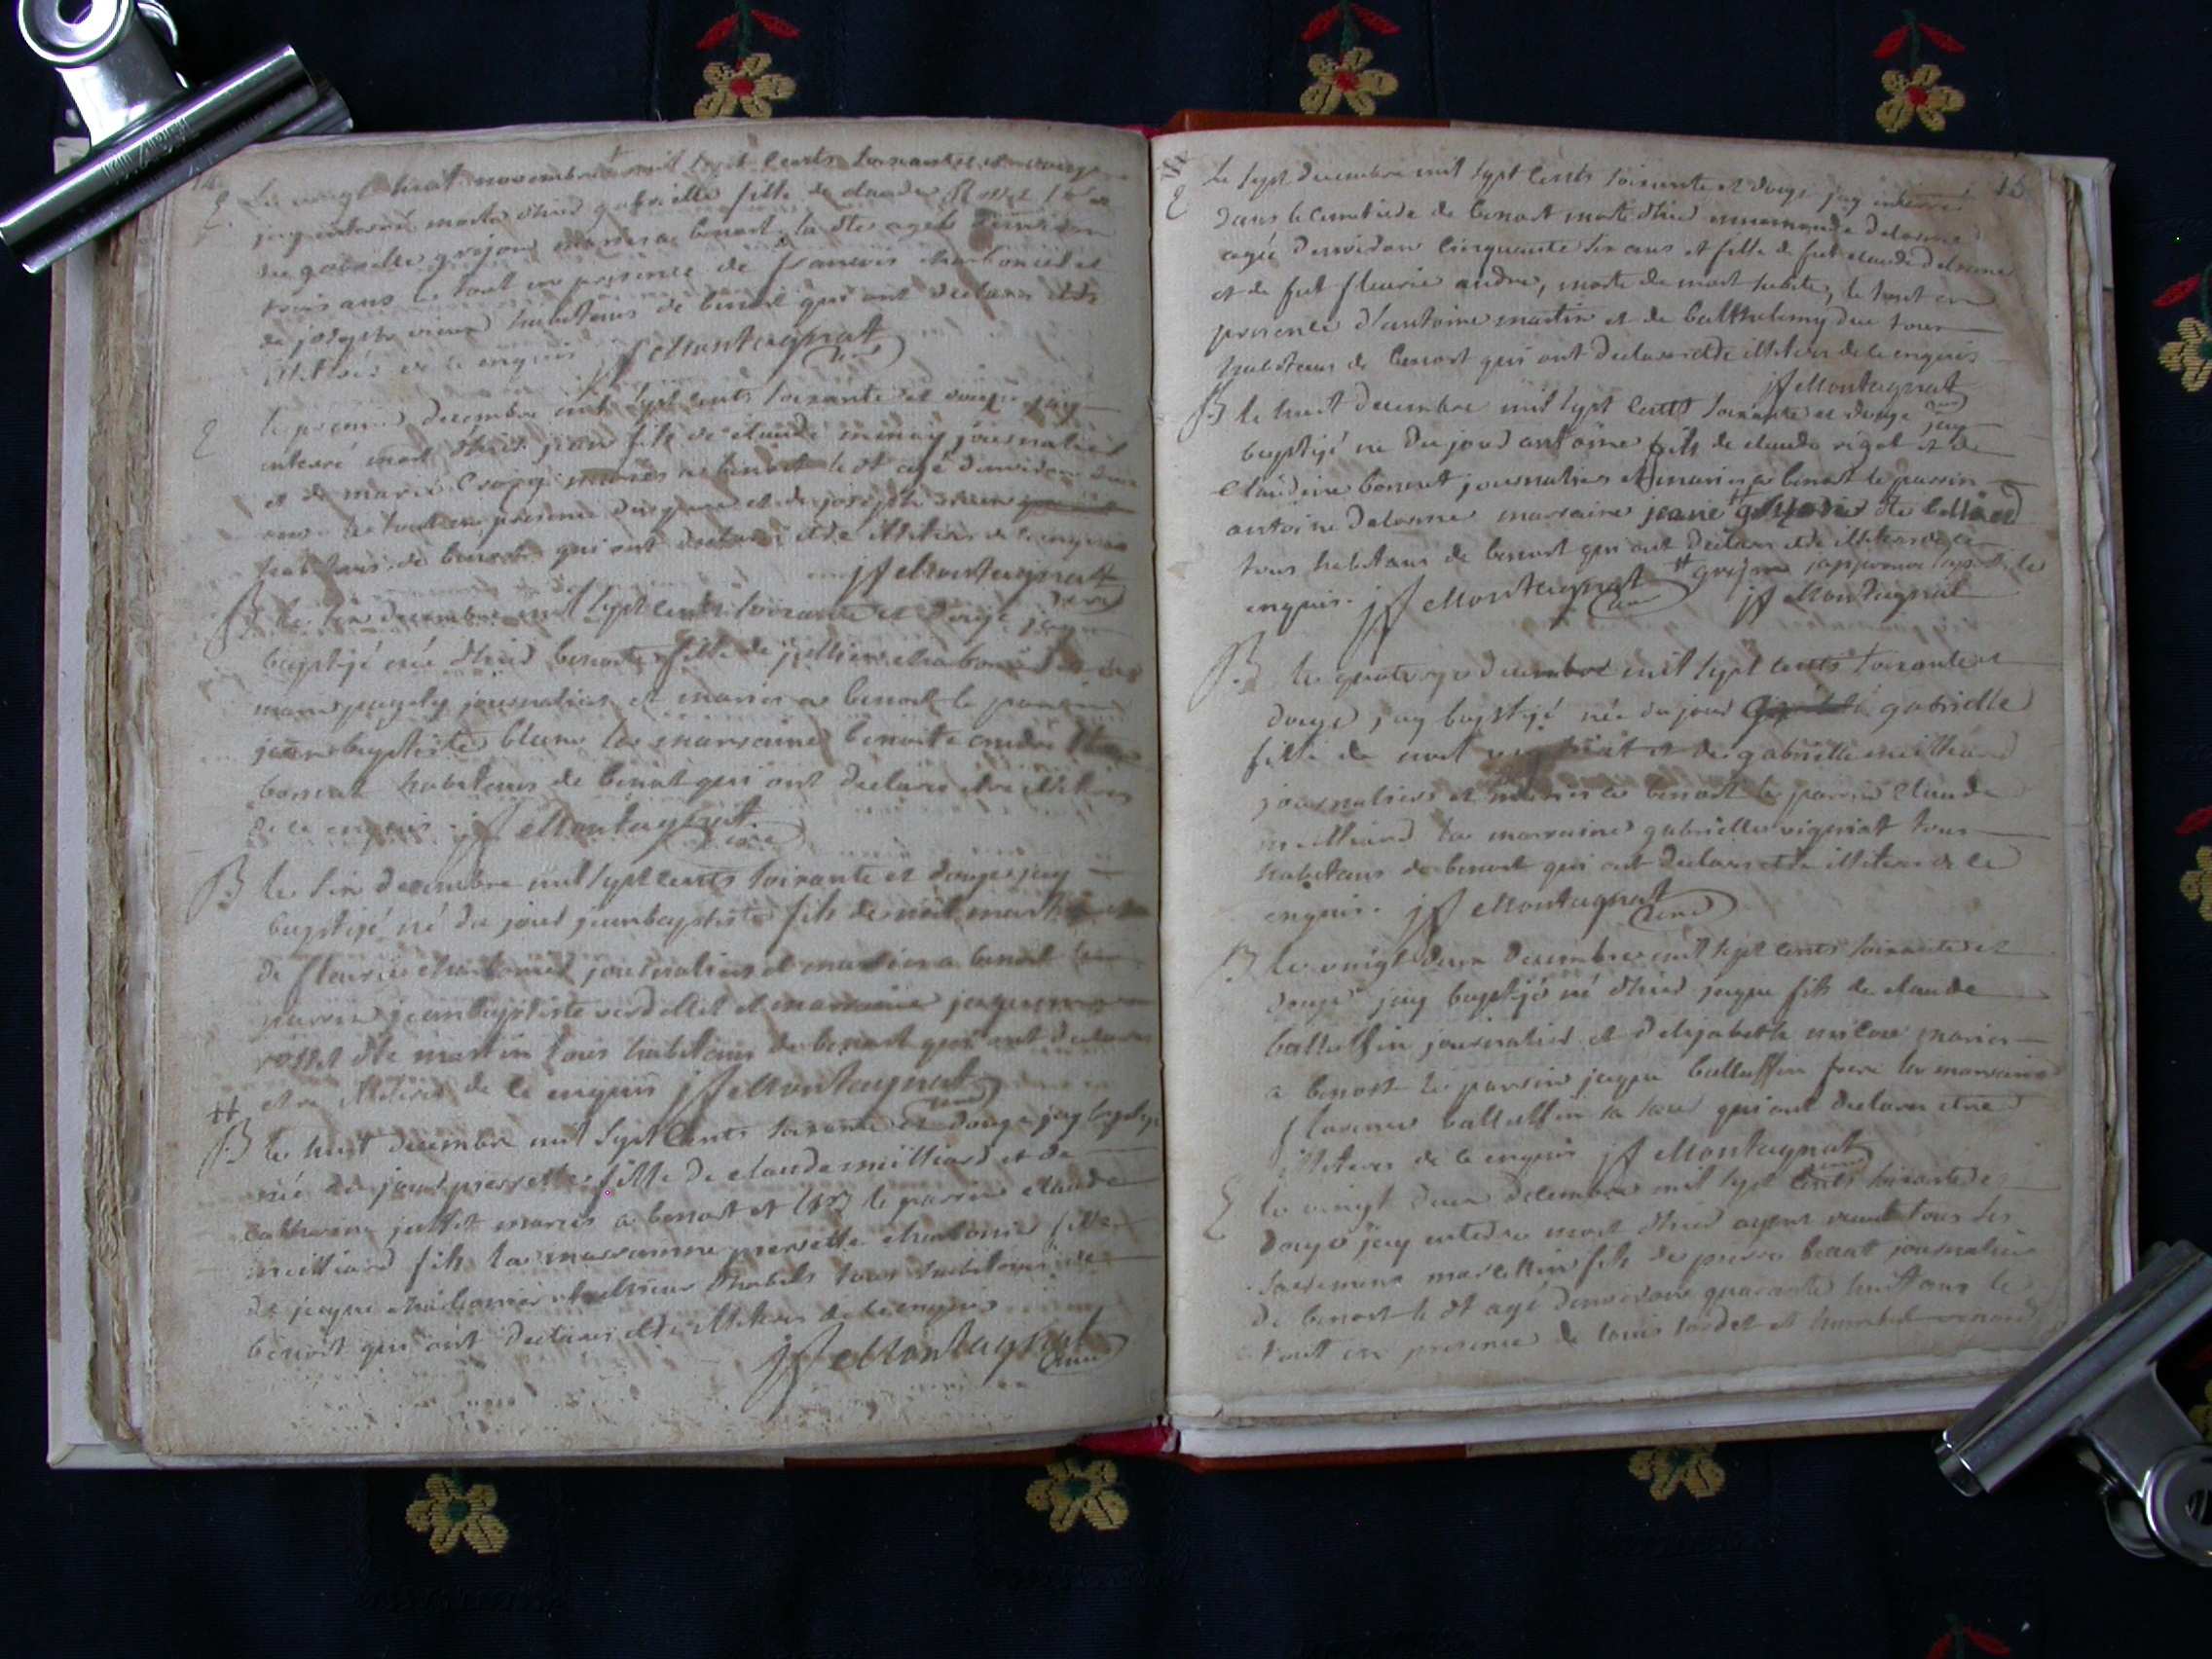 14
E. Le vingt huit novembre mil sept cents soixante et douze
jay enterré morte d'hier gabrielle fille de claude Rosset et
de gabrielle grojon mariés a benost la dte agée d'environ
trois ans le tout en presence de francois charbonier et
de joseph vieux habitans de benost qui ont declaré etre
illiterés de ce enquis jf Montagnat
curé
E le premier decembre mil sept cents soixante et douze jay
enterré mort d'hier jean fils de claude journalier
et de marie mariés a benost le dt agé d'environ deux
ans le tout en presence du pere et de joseph
habitans de benost qui ont declaré etre illiterés de ce enquis
jf Montagnat
curé
B le six decembre mil sept cents soixante et douze jay
baptizé née d'hier benoite fille de jullien charbonier et de
marie journaliers et mariés a benost le parrain
jean baptiste blanc la marraine benoite andré
bonnat habitans de benost qui ont declaré etre illiterés
de ce enquis jf Montagnat
curé
B le six decembre mil sept cents soixante et douze jay
baptizé né du jour jeanbaptiste fils de noël martin et
de fleurie charbonier journaliers et mariés a benost le
parrin jeanbaptiste verdellet et marraine jaquema
rosset dte martin tous habitans de benost qui ont declaré
etre illiterés de ce enquis jf Montagnat
curé
#
B le huit decembre mil sept cents soixante et douze jay baptizé
née du jour pierrette fille de claude milliard et de
catherine juillet mariés a benost et le parrin claude
milliard fils la marrainne pierrette charbonier fille
de jaque charbonier tous habitans de
benost qui ont declaré etre illiterés de ce enquis
jf Montagnat
curé
15
E le sept decembre mil sept cents soixante et douze jay enterré
dans le cimetiere de benost morte d'hier delorme
agée d'environ cinquante six ans et fille de fut claude delorme
et de fut fleurie andré, morte de mort subite, le tout en
presence d'antoine martin et de balthelemy duc tous
habitans de benost qui ont declaré etre illiterés de ce enquis
jf Montagnat
curé
B le huit decembre mil sept cents soixante et douze jay
baptizé né du jour antoine fils de claude rigol et de
claudine bonnet journaliers et mariés a benost le parrin
antoine delorme marraine jeanne # dte
tous habitans de benost qui ont declaré etre illiterés de ce
enquis. jf Montagnat # grojon japprouve
curé jf Montagnat
B le quatorze decembre mil sept cents soixante et
douze jay baptizé née du jour gabrielle
fille de noël et de gabrielle milliard
journaliers et mariés a benost le parrin claude
milliard la marraine gabrielle vigniat tous
habitans de benost qui ont declaré etre illiterés de ce
enquis. jf Montagnat
curé
B le vingt deux decembre mil sept cents soixante et
douze jay baptizé né d'hier jaque fils de claude
balluffin journalier et d'elizabeth mariés
a benost le parrin jaque balluffin frere la marraine
balluffin sa soeur qui ont declaré etre
illiterés de ce enquis jf Montagnat
curé
E le vingt deux decembre mil sept cents soixante et
douze jay enterré mort d'hier ayant receut tous ses
sacremens marcellin fils de pierre benat journalier
de benost le dt agé d'environ quarante huit ans le
tout en presence de louis tardet et humbert